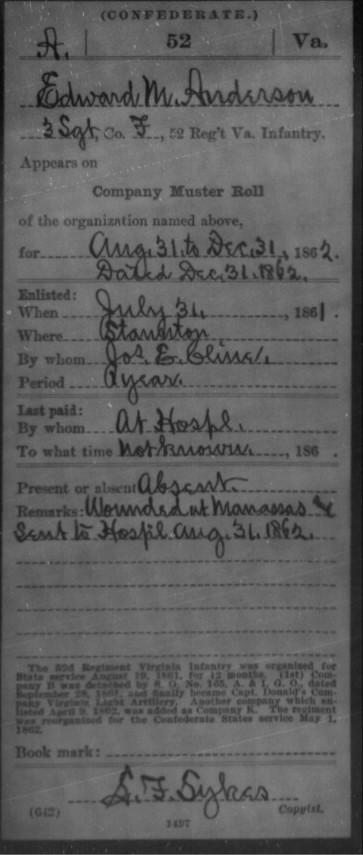 (CONFEDERATE.)
A. | 52 | Va.
Edward M. Anderson
3 Sgt, Co. F, 52 Reg't Va. Infantry.
Appears on
Company Muster Roll
of the organization named above,
for Aug. 31 to Dec. 31, 1862.
Dated Dec. 31. 1862.
Enlisted:
When July 31, 1861.
Where Staunton
By whom Jos. E. Cline.
Period A year.
Last paid:
By whom At Hospl.
To what time Not known, 186 .
Present or absent Absent.
Remarks: Wounded at Manassas &
Sent to Hospl. Aug. 31. 1862.
The 52d Regiment Virginia Infantry was organized for
State service August 19, 1861, for 12 months. (1st) Com-
pany B was detached by S. O. No. 165, A. & I. G. O., dated
September 28, 1861, and finally became Capt. Donald's Com-
pany Virginia Light Artillery. Another company which en-
listed April 9, 1862, was added as Company K. The regiment
was reorganized for the Confederate States service May 1,
1862.
Book mark:
S. F. Sykes
(642) Copyist.
1497